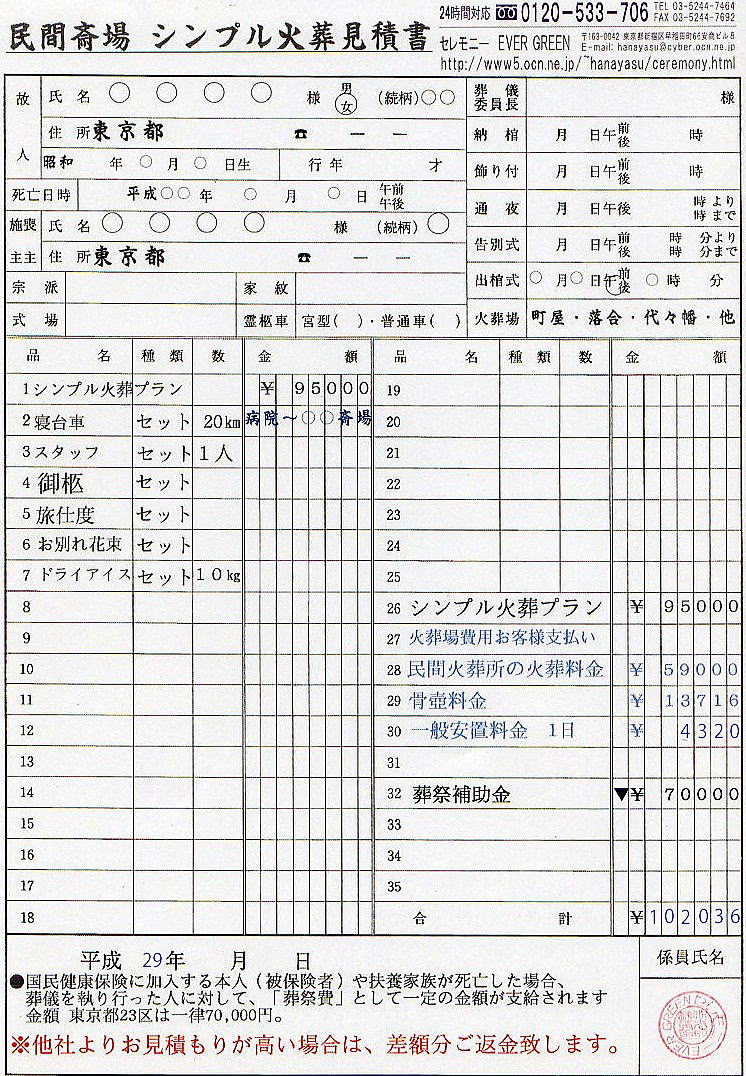 民間斎場 シンプル火葬見積書
24時間対応 0120-533-706 TEL 03-5244-7464 FAX 03-5244-7692
セレモニー EVER GREEN 〒163-0042 東京都新宿区早稲田町66安商ビル8
E-mail: hanayasu@cyber.ocn.ne.jp
http://www5.ocn.ne.jp/~hanayasu/ceremony.html
故人 氏名 ○ ○ ○ ○ 様 男 女 (続柄)○○
住所 東京都 ☎ ― ―
昭和 年 ○ 月 ○ 日生 行年 才
死亡日時 平成○○年 ○ 月 ○ 日 午前 午後
施主 喪主 氏名 ○ ○ ○ ○ 様 (続柄)○
住所 東京都 ☎ ― ―
宗派 家紋
式場 霊柩車 宮型( )・普通車( )
葬儀委員長 様
納棺 月 日午前後 時
飾り付 月 日午前後 時
通夜 月 日午後 時より 時まで
告別式 月 日午前後 時 分より 時 分まで
出棺式 ○ 月○ 日午前後 ○ 時 分
火葬場 町屋・落合・代々幡・他
品名 種類 数 金額 品名 種類 数 金額
1 シンプル火葬プラン ¥ 95000
2 寝台車 セット 20km 病院~○○斎場
3 スタッフ セット 1人
4 御柩 セット
5 旅仕度 セット
6 お別れ花束 セット
7 ドライアイス セット 10kg
8
9
10
11
12
13
14
15
16
17
18
19
20
21
22
23
24
25
26 シンプル火葬プラン ¥ 95000
27 火葬場費用お客様支払い
28 民間火葬所の火葬料金 ¥ 59000
29 骨壺料金 ¥ 13716
30 一般安置料金 1日 ¥ 4320
31
32 葬祭補助金 ▼¥ 70000
33
34
35
合計 ¥102036
平成 29年 月 日
係員氏名
●国民健康保険に加入する本人(被保険者)や扶養家族が死亡した場合、
葬儀を執り行った人に対して、「葬祭費」として一定の金額が支給されます
金額 東京都23区は一律70,000円。
※他社よりお見積もりが高い場合は、差額分ご返金致します。
EVER GREEN